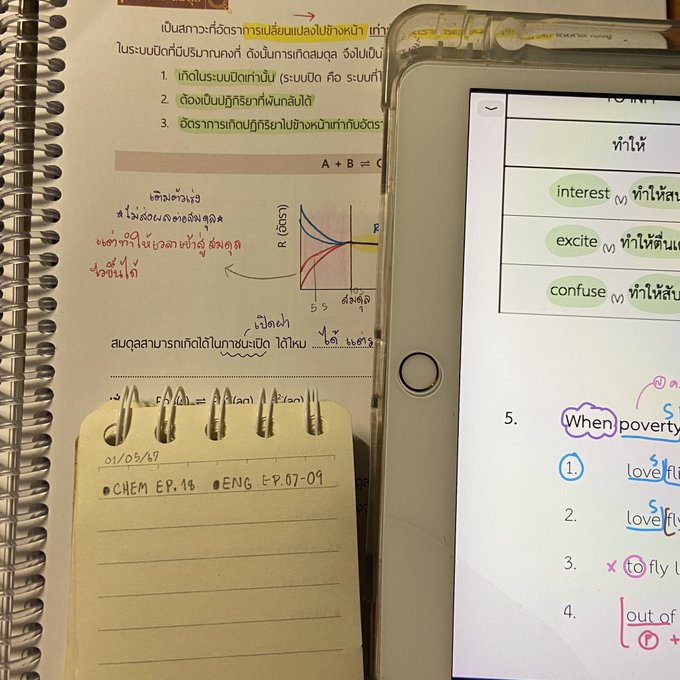 เป็นสภาวะที่อัตราการเปลี่ยนแปลงไปข้างหน้า
ในระบบปิดที่มีปริมาณคงที่ ดังนั้นการเกิดสมดุล จึงไปเป็น
1. เกิดในระบบปิดเท่านั้น (ระบบปิด คือ ระบบที่
2. ต้องเป็นปฏิกิริยาที่ผันกลับได้
3. อัตราการเกิดปฏิกิริยาไปข้างหน้าเท่ากับอัตรา
A + B ⇌
เติมตัวเร่ง
*ไม่ส่งผลต่อสมดุล*
แต่ทำให้เวลาเข้าสู่สมดุล
ไวขึ้นได้
R (อัตรา)
5 s
10 s
สมดุล
เปิดฝา
สมดุลสามารถเกิดได้ในภาชนะเปิด ได้ไหม ได้ แต่
01/05/67
• CHEM EP.18 • ENG EP.07-09
ทำให้
interest (v) ทำให้
excite (v) ทำให้ตื่นเ
confuse (v) ทำให้สับ
S
5. When poverty
S
1. love fli
S
2. love fly
3. × to fly l
4. out of
P +